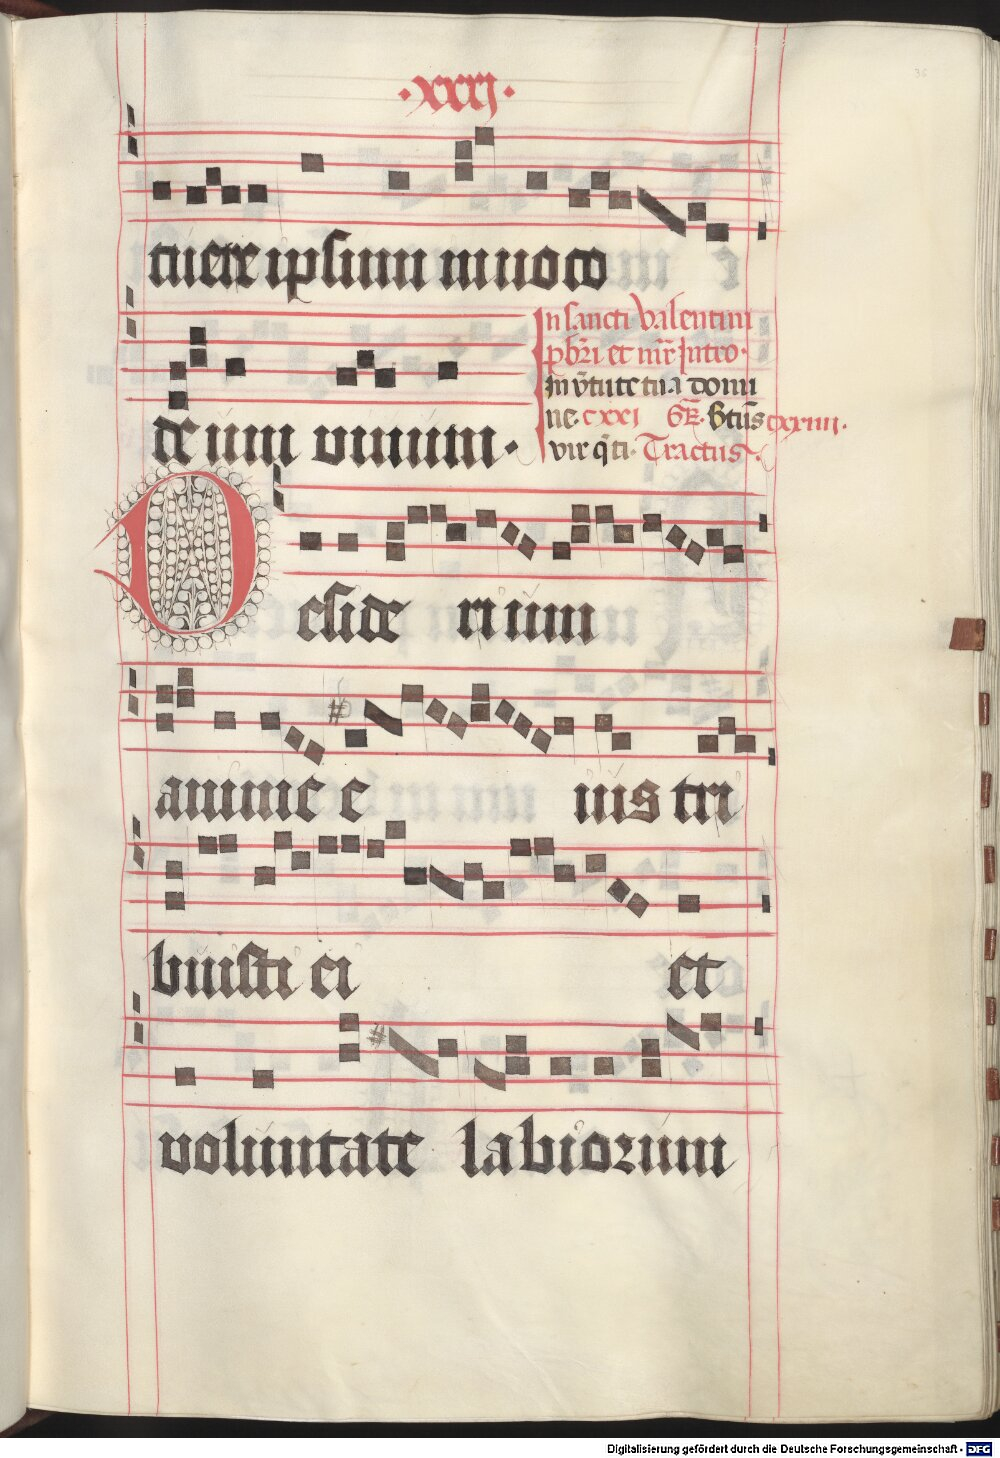 ·xxxj·
tuere ipsum in uoce
In sancti Valentini
pbri et mr̄ Intro·
In v̄tute tua domi
ne· cxxj GR̄· Btūs cxxiiii·
vir q̄ ti· Tractus·
de um uinum·
Desiderium
anime eius tri
buisti ei et
voluntate labiorum
36
Digitalisierung gefördert durch die Deutsche Forschungsgemeinschaft - DFG